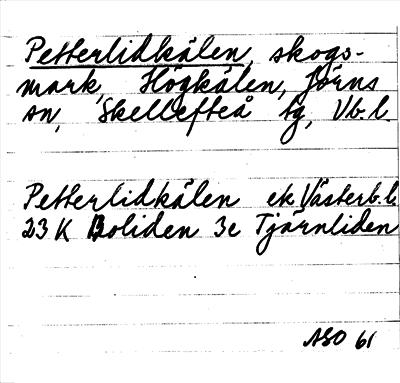 Petterlidkälen, skogs-
mark, Högkälen, Jörns
sn, Skellefteå tg, Vb.l.
Petterlidkälen ek Västerb.l
23 K Boliden 3e Tjärnliden
ASO 61